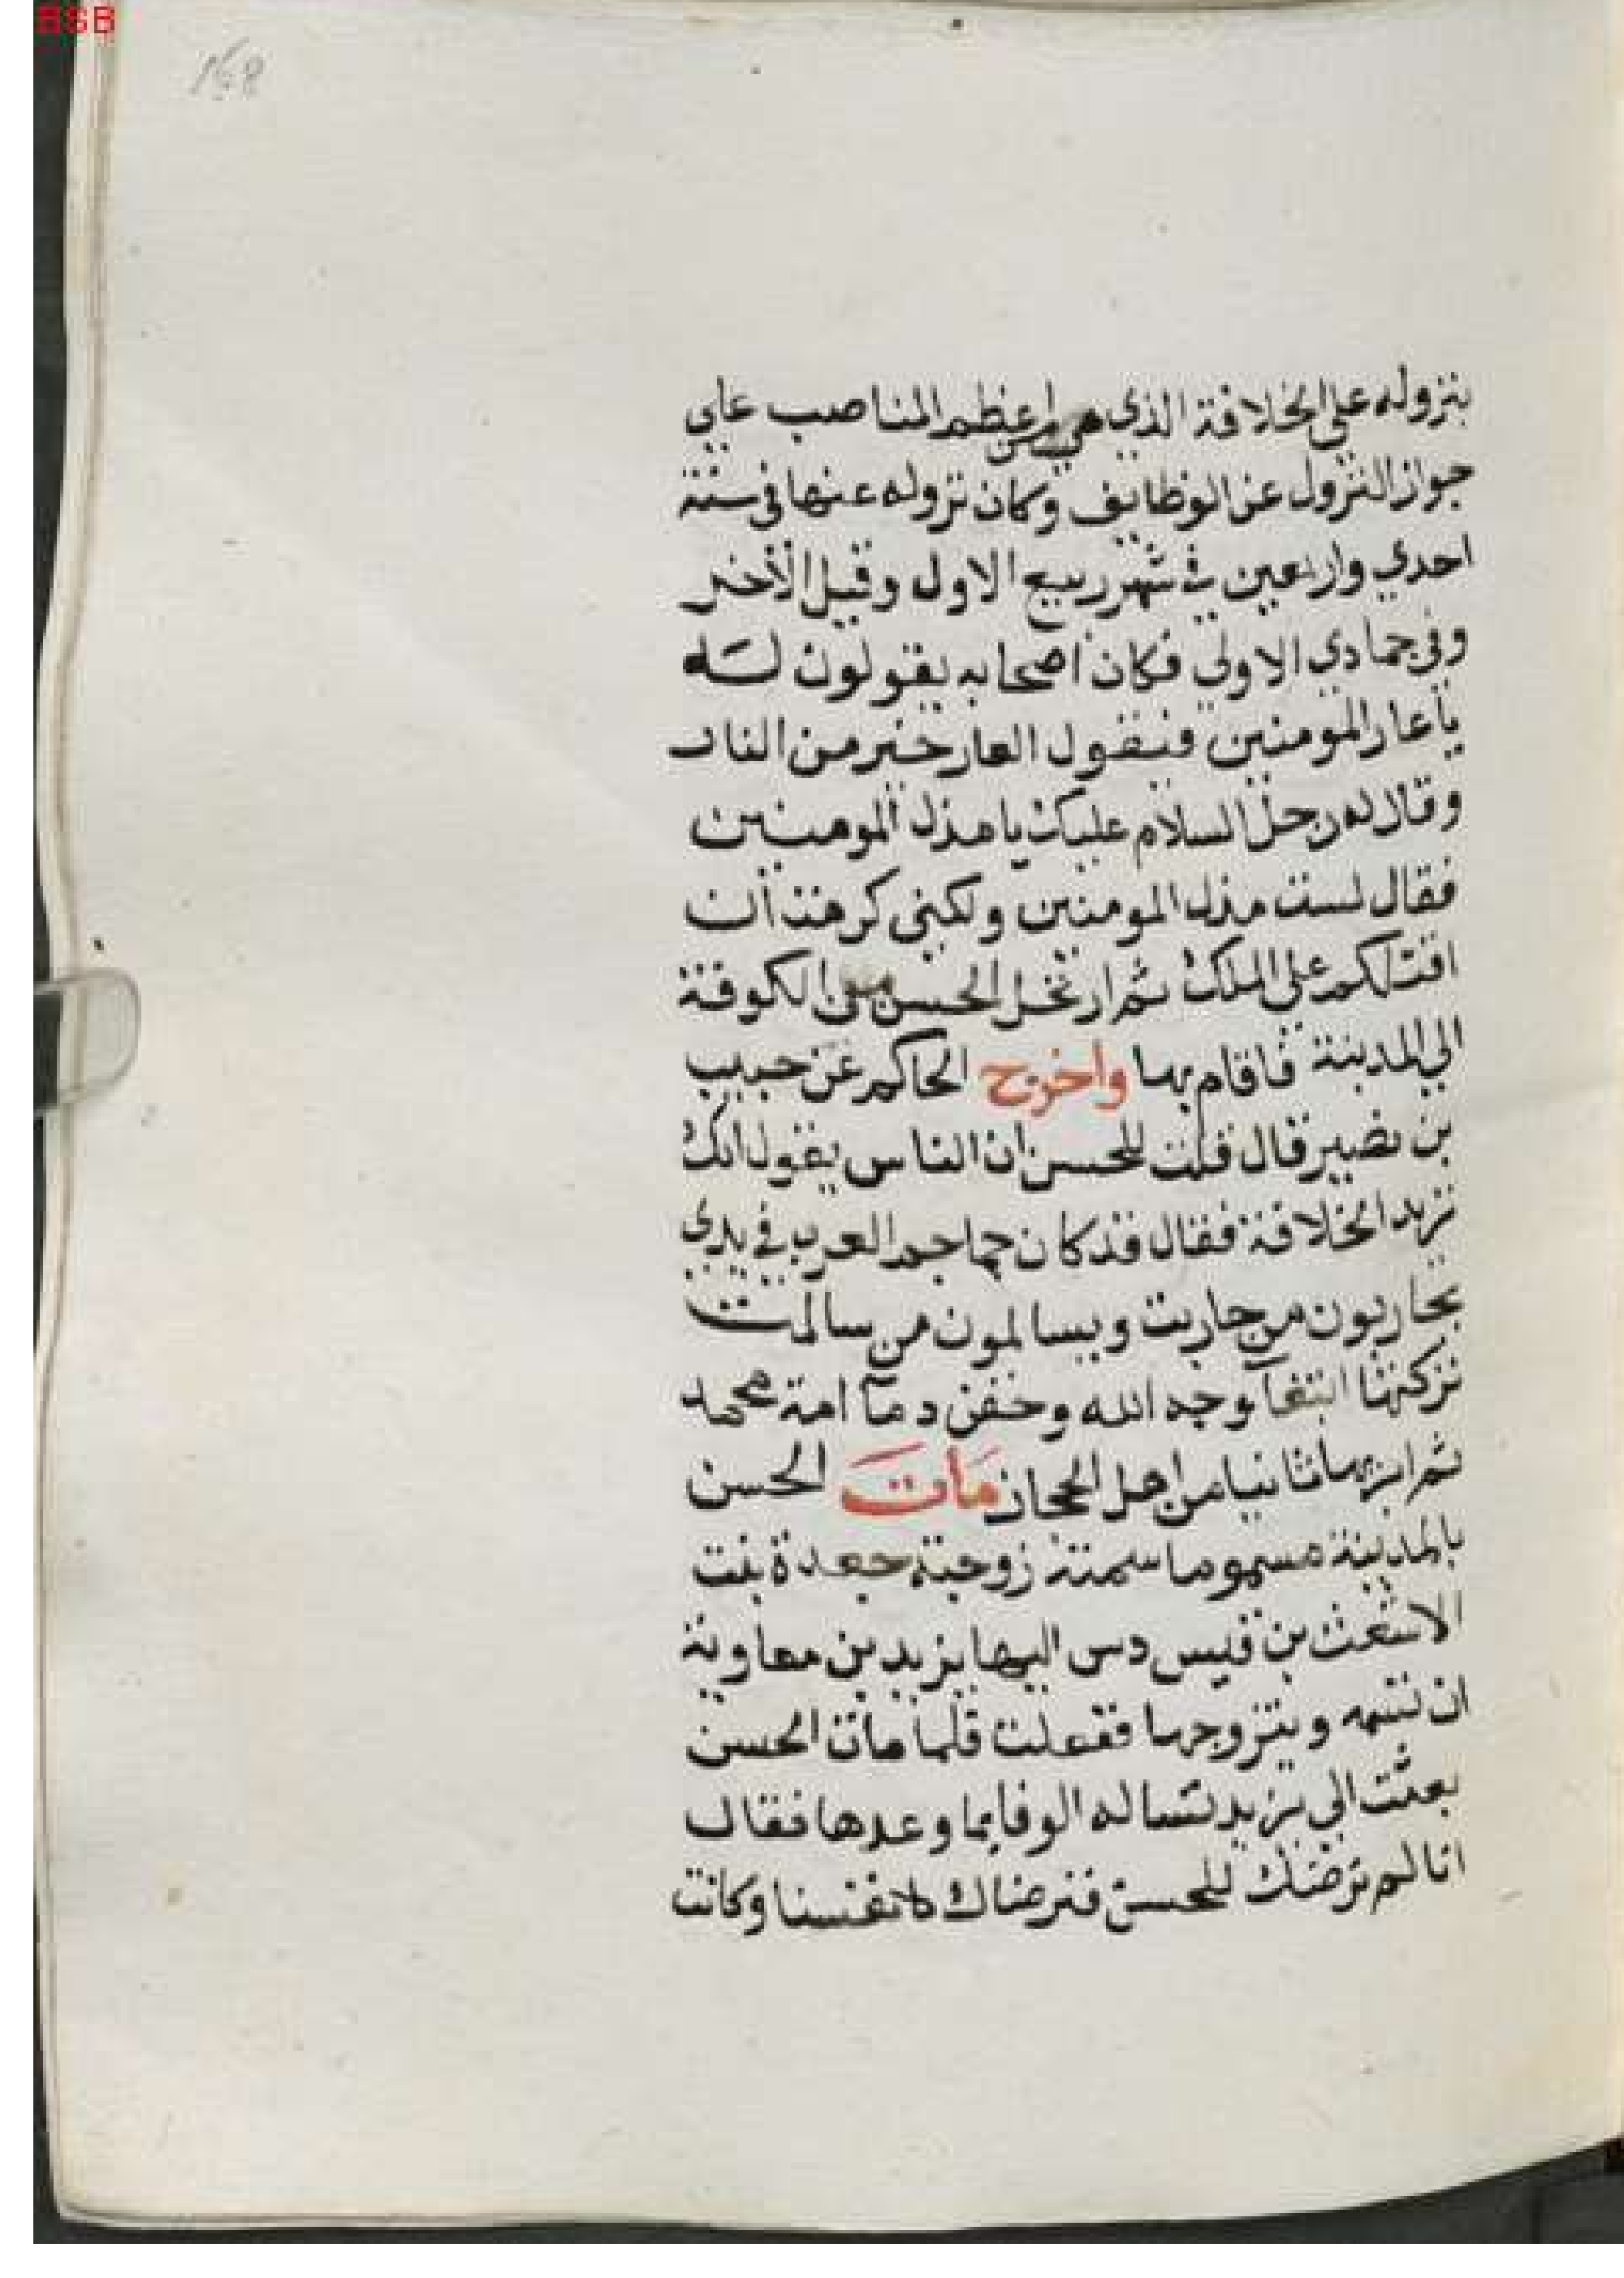 BSB
148
بنزوله على الخلافة الذي هي من اعظم المناصب علي
جواز النزول عن الوظايف وكان نزوله عنها في سنة
احدي واربعين في شهر ربيع الاول وقيل الأخر
وفي جمادي الاولي فكان اصحابه يقولون له
يا عار المومنين فيقول العار خير من النار
وقال له رجل السلام عليك يا مذل المومنين
فقال لست مذل المومنين ولكني كرهت ان
اقتلكم على الملك ثم ارتحل الحسن من الكوفة
الي المدينة فاقام بها واخرج الحاكم عن جبيب
بن نضير قال قلت للحسن ان الناس يقول انك
تزيد الخلافة فقال قد كان جماجم العرب في يدي
يحاربون من حاربت ويسالمون من سالمت
تركتها ابتغآ وجه الله وحقن دمآ امة محمد
ثم ثانيا من اهل الحجاز مات الحسن
بالمدينة مسموما سمته زوجته جعدة بنت
الاشعث بن قيس دس اليها يزيد بن معاوية
ان تسمه ويتزوجها ففعلت فلما مات الحسن
بعثت الي يزيد تساله الوفا بما وعدها فقال
انا لم نرضك للحسن فنرضاك لانفسنا وكانت